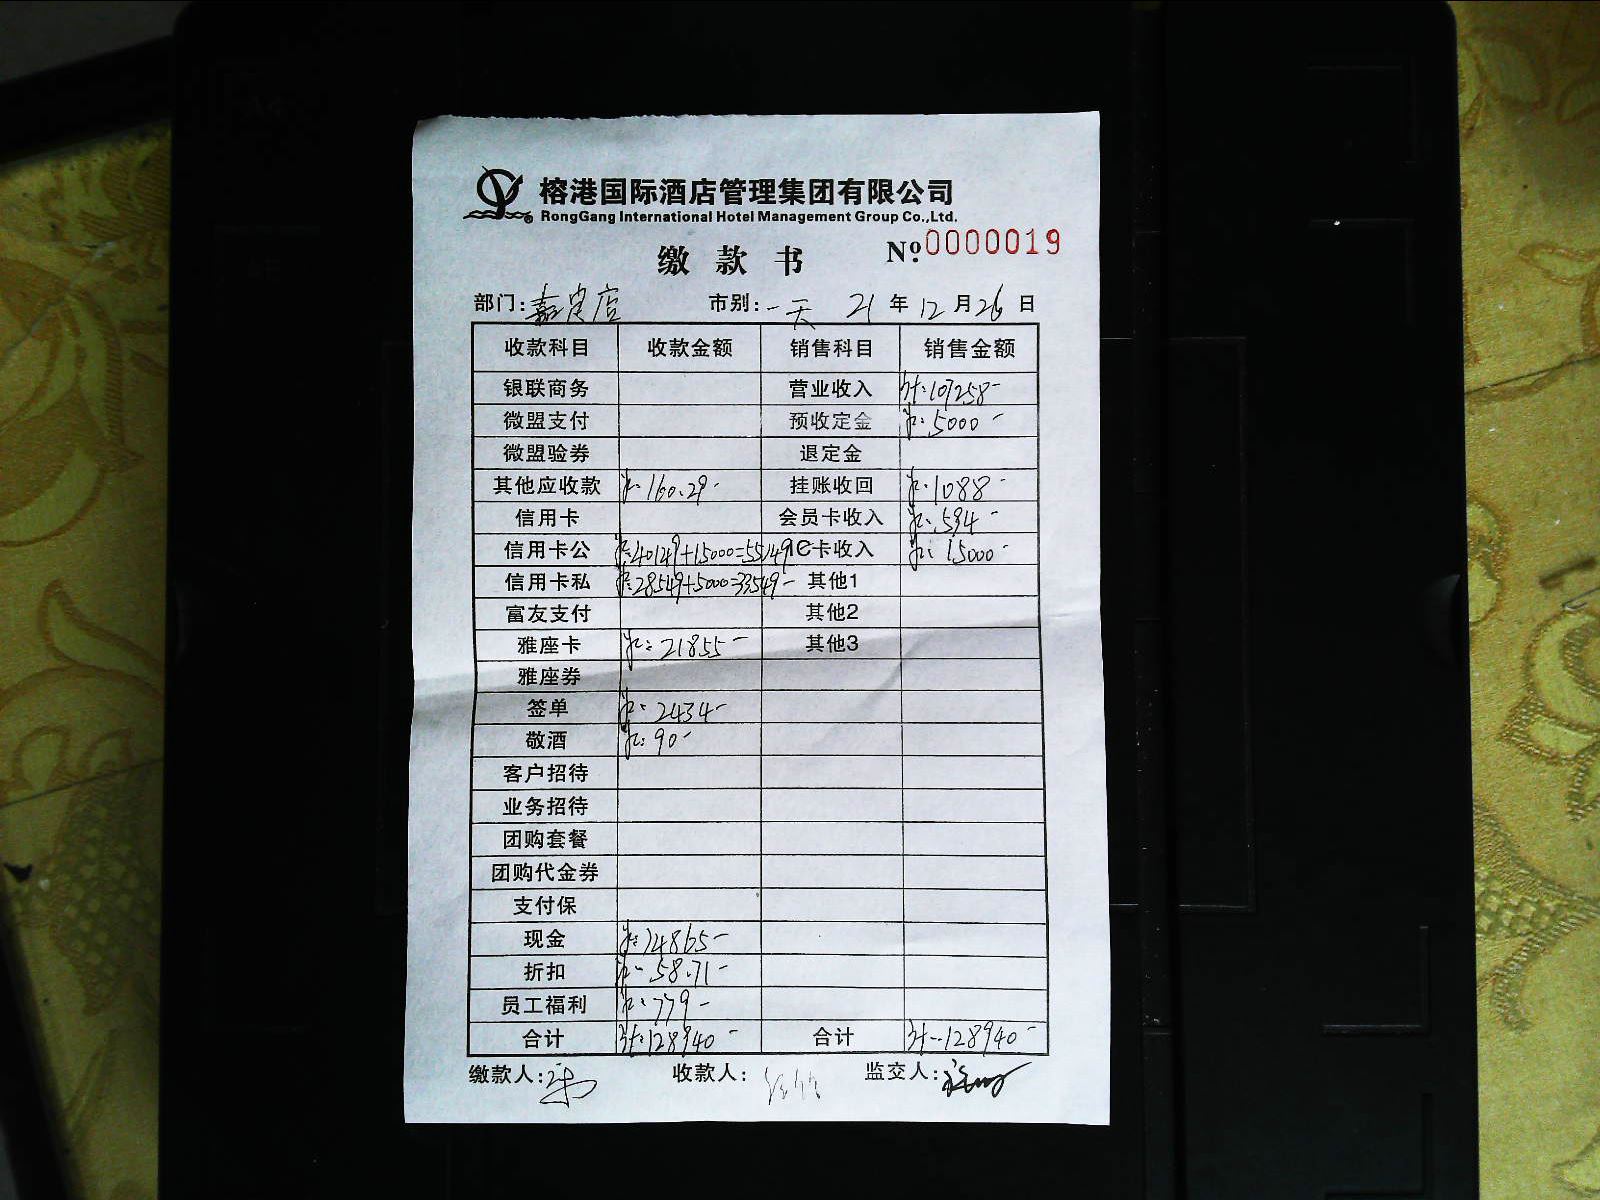 榕港国际酒店管理集团有限公司
RongGang International Hotel Management Group Co.,Ltd.
缴款书 №0000019
部门:嘉定店 市别:一天 21年12月26日
收款科目 收款金额 销售科目 销售金额
银联商务 营业收入 计:107258-
微盟支付 预收定金 5000-
微盟验券 退定金
其他应收款 160.29- 挂账收回 1088-
信用卡 会员卡收入 594-
信用卡公 40149+15000=55149 IC卡收入 15000-
信用卡私 28549+5000=33549- 其他1
富友支付 其他2
雅座卡 21855- 其他3
雅座券
签单 2434-
敬酒 90-
客户招待
业务招待
团购套餐
团购代金券
支付保
现金 14865-
折扣 58.71-
员工福利 779-
合计 计:128940- 合计 计:128940-
缴款人: 收款人: 监交人: